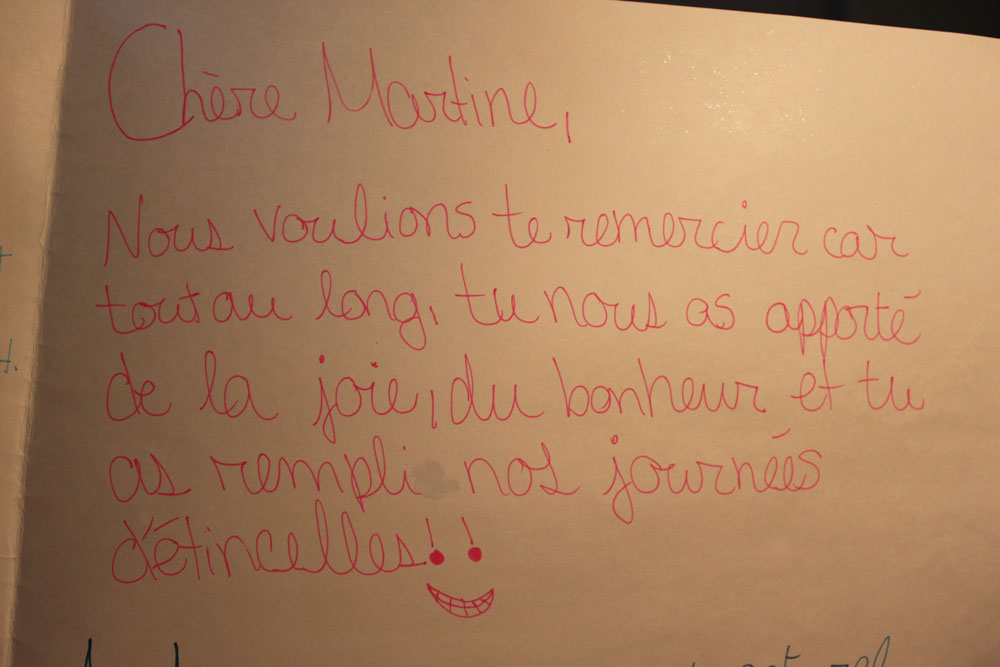 Chère Martine,
Nous voulions te remercier car
tout au long, tu nous as apporté
de la joie, du bonheur et tu
as rempli nos journées
d'étincelles!!